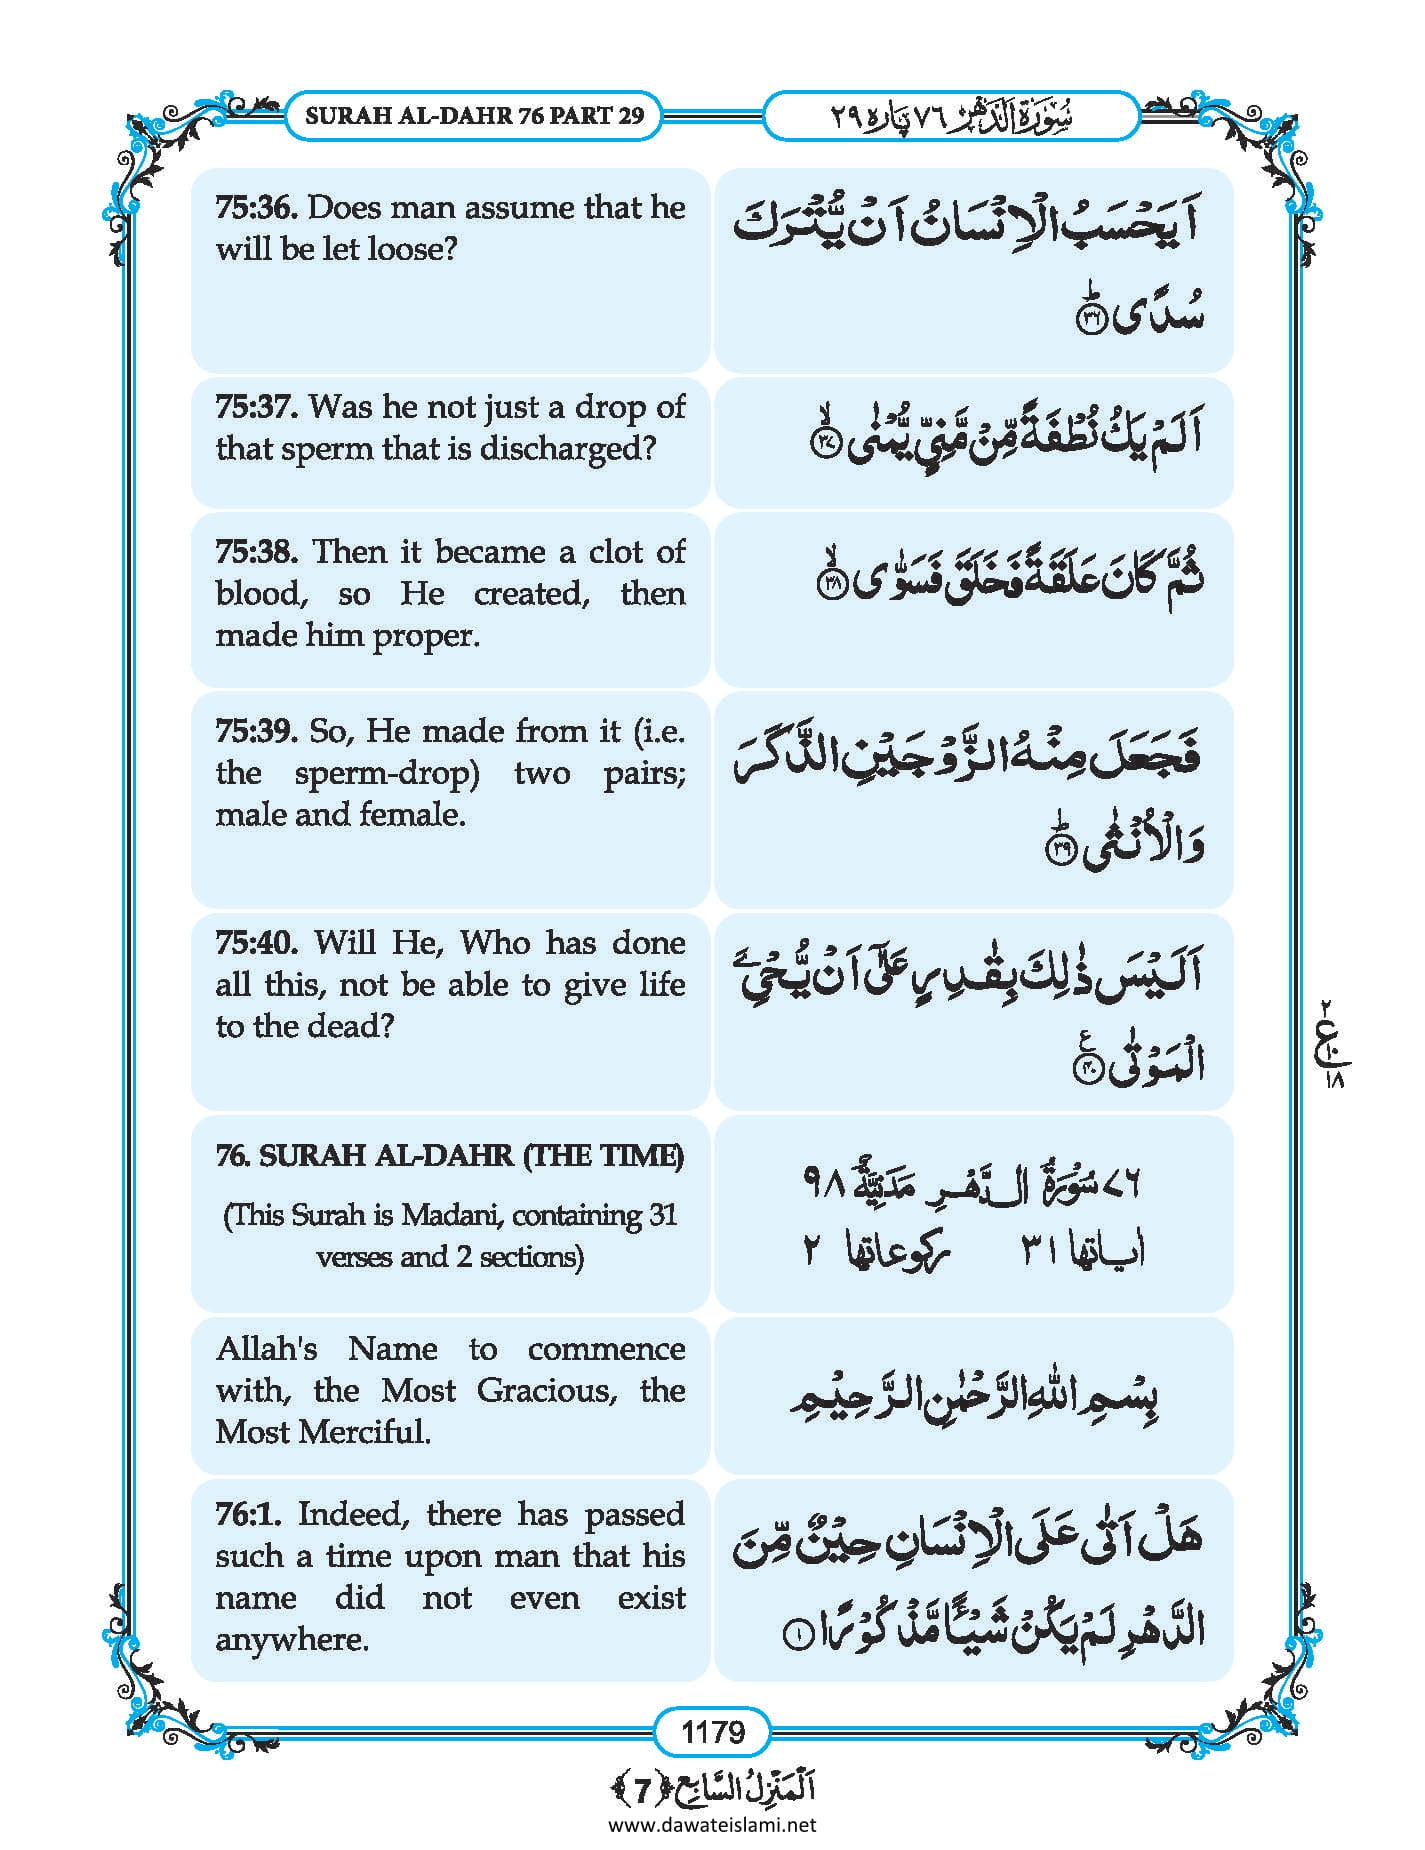 SURAH AL-DAHR 76 PART 29
سُوْرَۃُ الدَّهْرِ ٧٦ پاره ٢٩
75:36. Does man assume that he
will be let loose?
اَیَحْسَبُ الْاِنْسَانُ اَنْ یُّتْرَكَ
سُدًی ؕ﴿۳۶﴾
75:37. Was he not just a drop of
that sperm that is discharged?
اَلَمْ یَكُ نُطْفَةً مِّنْ مَّنِیٍّ یُّمْنٰی ۙ﴿۳۷﴾
75:38. Then it became a clot of
blood, so He created, then
made him proper.
ثُمَّ كَانَ عَلَقَةً فَخَلَقَ فَسَوّٰی ۙ﴿۳۸﴾
75:39. So, He made from it (i.e.
the sperm-drop) two pairs;
male and female.
فَجَعَلَ مِنْهُ الزَّوْجَیْنِ الذَّكَرَ
وَالْاُنْثٰی ؕ﴿۳۹﴾
75:40. Will He, Who has done
all this, not be able to give life
to the dead?
اَلَیْسَ ذٰلِكَ بِقٰدِرٍ عَلٰۤی اَنْ یُّحْیَِۧ
الْمَوْتٰی ﴿۴۰﴾ ع
٢
ع
١٠
١٨
76. SURAH AL-DAHR (THE TIME)
(This Surah is Madani, containing 31
verses and 2 sections)
٧٦ سُوْرَةُ الدَّهْرِ مَدَنِیَّةٌ ٩٨
ایاتها ٣١ ركوعاتها ٢
Allah's Name to commence
with, the Most Gracious, the
Most Merciful.
بِسْمِ اللهِ الرَّحْمٰنِ الرَّحِیْمِ
76:1. Indeed, there has passed
such a time upon man that his
name did not even exist
anywhere.
هَلْ اَتٰی عَلَی الْاِنْسَانِ حِیْنٌ مِّنَ
الدَّهْرِ لَمْ یَكُنْ شَیْـًٔا مَّذْكُوْرًا ﴿۱﴾
1179
اَلْمَنْزِلُ السَّابِع ﴿7﴾
www.dawateislami.net